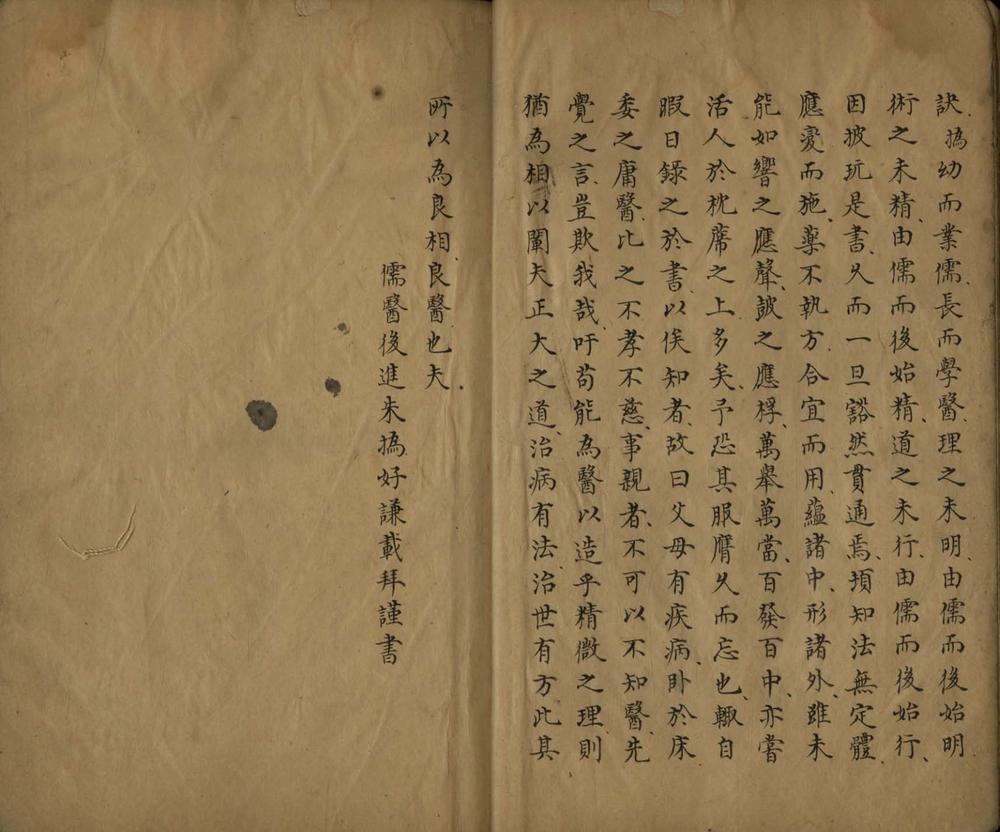 訣撝幼而業儒長而學醫理之未明由儒而後始明
術之未精由儒而後始精道之未行由儒而後始行
因披玩是書久而一旦豁然貫通焉湏知法無定體
應変而施藥不執方合宜而用蘊諸中形諸外雖未
能如響之應聲皷之應桴萬舉萬當百發百中亦嘗
活人於枕席之上多矣予恐其服膺久而忘也輙自
暇日錄之於書以俟知者故曰父母有疾病卧於床
委之庸醫比之不孝不慈事親者不可以不知醫先
覺之言豈欺我哉吁苟能為醫以造乎精微之理則
猶為相以闡夫正大之道治病有法治世有方此其
所以為良相良醫也夫
儒醫後進朱撝好謙載拜謹書